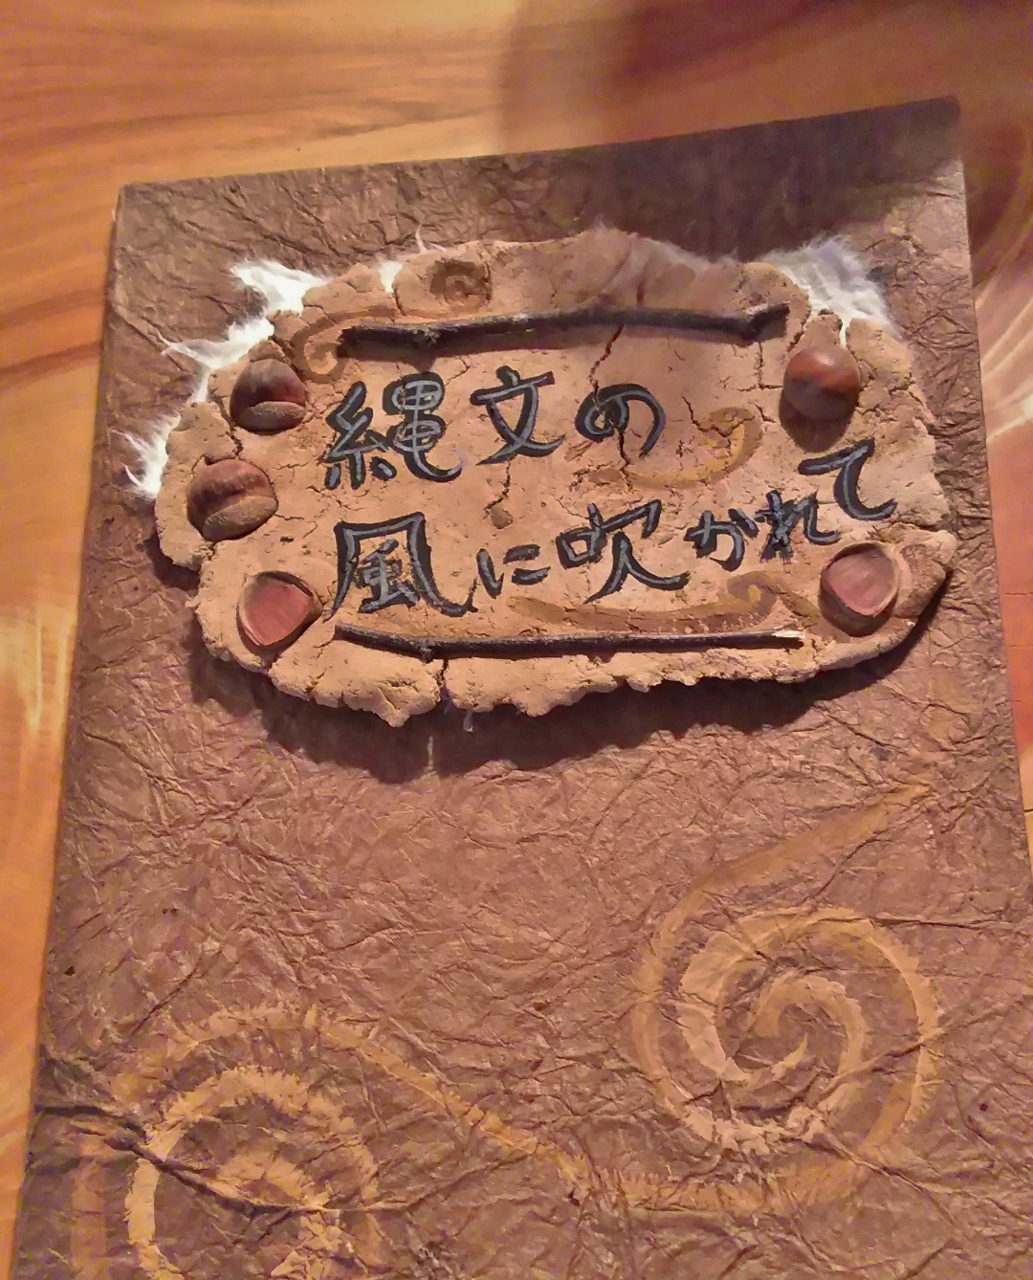 縄文の
風に吹かれて